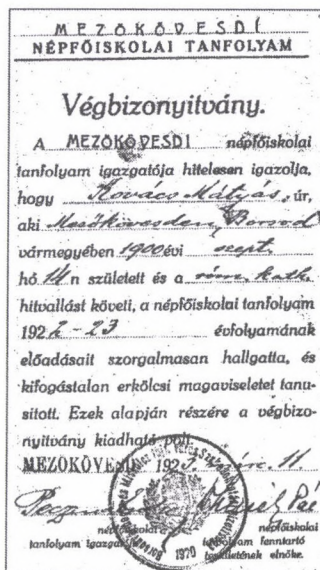 MEZŐKÖVESDI
NÉPFŐISKOLAI TANFOLYAM
Végbizonyitvány.
A MEZŐKÖVESDI népfőiskolai
tanfolyam igazgatója hitelesen igazolja,
hogy Kovács Mátyás úr,
aki Mezőkövesden, Borsod
vármegyében 1900 évi szept.
hó 14 n született és a róm. kath.
hitvallást követi, a népfőiskolai tanfolyam
1922-23 évfolyamának
előadásait szorgalmasan hallgatta, és
kifogástalan erkölcsi magaviseletet tanu-
sitott. Ezek alapján részére a végbizo-
nyitvány kiadható volt.
MEZŐKÖVESD 192 márc. 11.
népfőiskolai
tanfolyam
népfőiskolai
tanfolyam fenntartó
területének elnöke.
1920